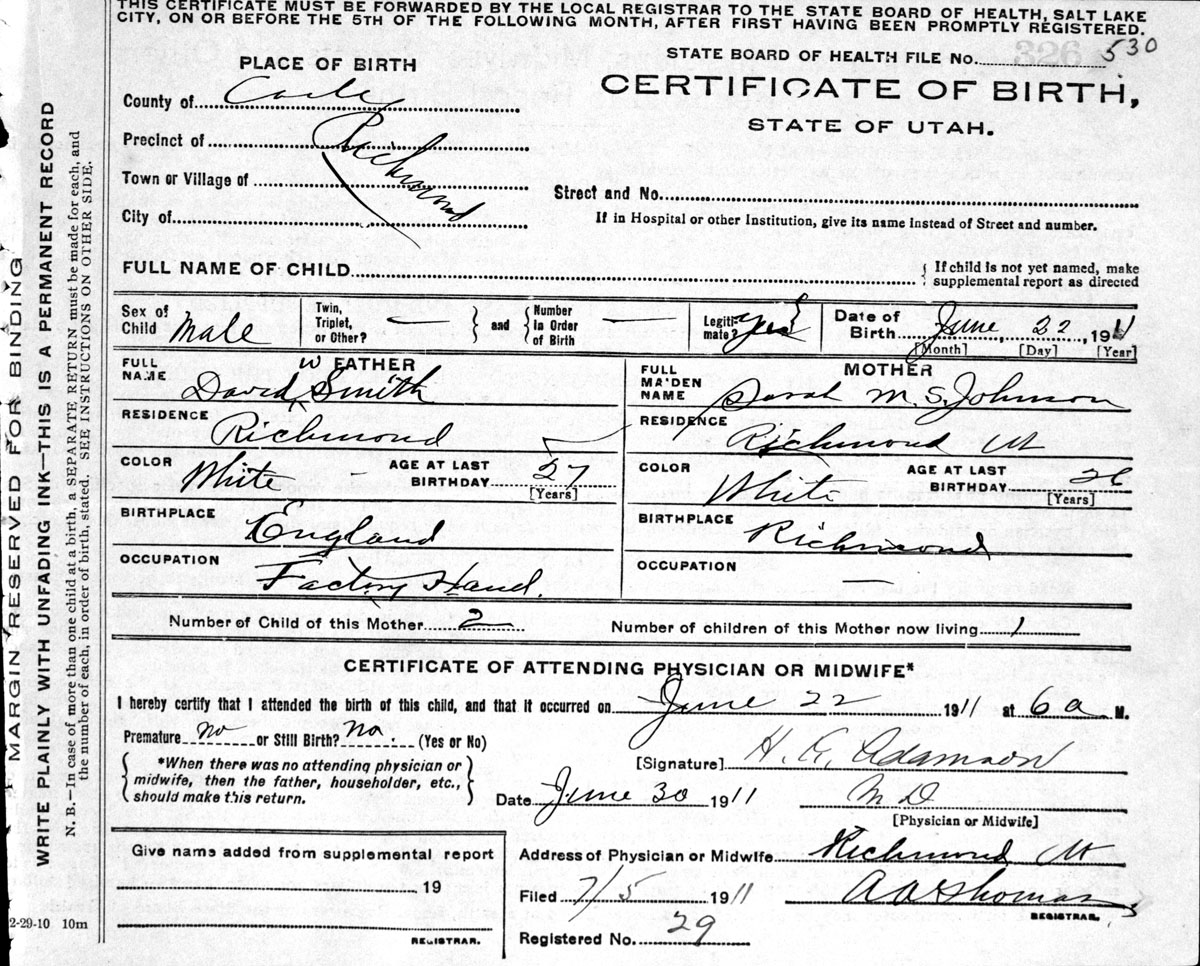 THIS CERTIFICATE MUST BE FORWARDED BY THE LOCAL REGISTRAR TO THE STATE BOARD OF HEALTH, SALT LAKE
CITY, ON OR BEFORE THE 5TH OF THE FOLLOWING MONTH, AFTER FIRST HAVING BEEN PROMPTLY REGISTERED.
STATE BOARD OF HEALTH FILE No. 530
326
PLACE OF BIRTH
CERTIFICATE OF BIRTH,
STATE OF UTAH.
County of Cache
Precinct of Richmond
Town or Village of
City of
Street and No.
If in Hospital or other Institution, give its name instead of Street and number.
FULL NAME OF CHILD
{ If child is not yet named, make
supplemental report as directed
Sex of Child Male
Twin, Triplet, or Other? — } and { Number In Order of Birth —
Legiti- mate? Yes
Date of Birth June 22, 1911
[Month] [Day] [Year]
FATHER
FULL NAME David W Smith
RESIDENCE Richmond
COLOR White AGE AT LAST BIRTHDAY 27 [Years]
BIRTHPLACE England
OCCUPATION Factory Hand.
MOTHER
FULL MAIDEN NAME Sarah M. S. Johnson
RESIDENCE Richmond Ut
COLOR White AGE AT LAST BIRTHDAY 26 [Years]
BIRTHPLACE Richmond
OCCUPATION —
Number of Child of this Mother 2
Number of children of this Mother now living 1
CERTIFICATE OF ATTENDING PHYSICIAN OR MIDWIFE*
I hereby certify that I attended the birth of this child, and that it occurred on June 22 1911 at 6 a M.
Premature no or Still Birth? no. (Yes or No)
{ *When there was no attending physician or
midwife, then the father, householder, etc.,
should make this return. }
[Signature] Adamson
Date June 30 1911 M D
[Physician or Midwife]
Give name added from supplemental report
19
REGISTRAR.
Address of Physician or Midwife Richmond Ut
Filed 7/5 1911 Thomas
REGISTRAR.
Registered No. 29
MARGIN RESERVED FOR BINDING
WRITE PLAINLY WITH UNFADING INK—THIS IS A PERMANENT RECORD
N. B.—In case of more than one child at a birth, a SEPARATE RETURN must be made for each, and
the number of each, in order of birth, stated. SEE INSTRUCTIONS ON OTHER SIDE.
2-29-10 10m